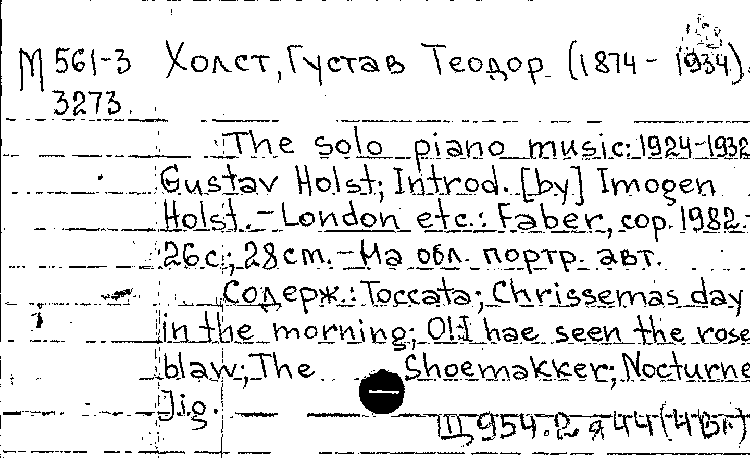 М 561-3 Холст, Густав Теодор (1874 - 1934).
3273.
The solo piano music: 1924-1932
Gustav Holst; Introd. [by] Imogen
Holst. - London etc.: Faber, cop. 1982.
26 с.; 28 cm. - На обл. портр. авт.
Содерж.: Toccata; Chrissemas day
in the morning; O! I hae seen the rose
blaw; The Shoemakker; Nocturne
Jig.
Щ 954.2 я 44 (4Вг)